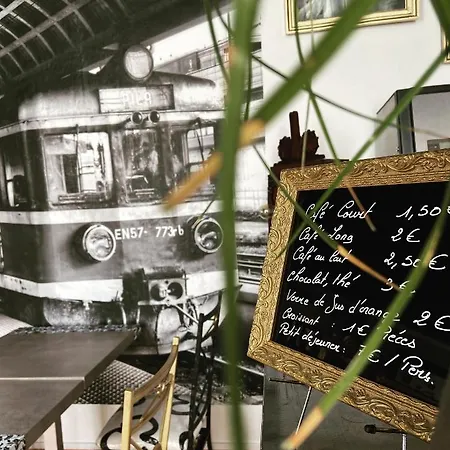 EN57-773-b
Café Court 1,50€
Café Long 2€
Café au lait 2,50€
Chocolat, thé 3€
Verre de Jus d'orange 2€
Croissant : 1€ Pièces
Petit déjeuner: 7€/Pers.